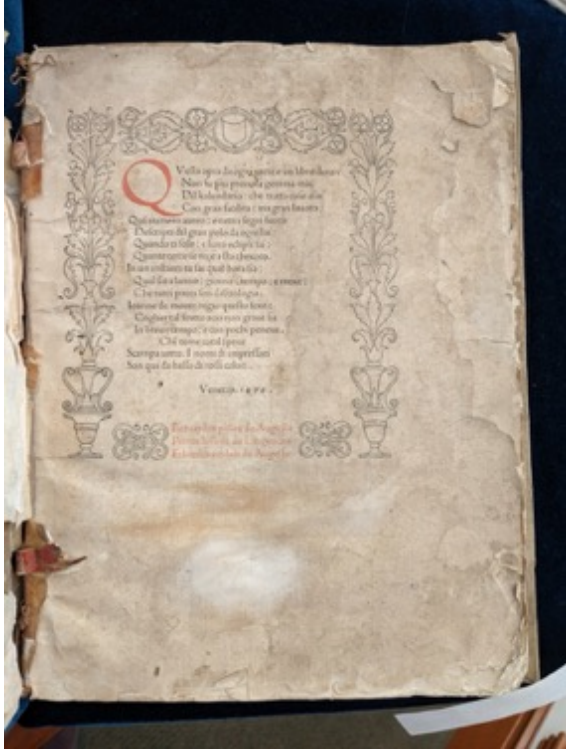 Questa opra da ogni parte e un libro doro
Non fu piu preciosa gemma mai
Dil kalendario: che tratta cose asai
Con gran facilita: ma gran lauoro
Qui numero aureo: e tutti i segni fuoro
Descripti dil gran polo da ogni lai:
Quando il sole: e luna eclipsi fai:
Quante terre se rege a sto thesoro.
In un instanti tu sai qual hora sia:
Qual sara lanno: giorno: tempo: e mexe:
Che tutti ponti son dastrologia.
Ioanne de monte regio questo fexe:
Coglier tal frutto acio non graue sia
In breue tempo: e con pochi penexe.
Chi teme cotal spexe
Scampa uirtu. I nomi di impressori
Son qui da basso di rossi colori.
Venetijs. 1476.
Bernardus pictor de Augusta
Petrus loslein de Langencen
Erhardus ratdolt de Augusta